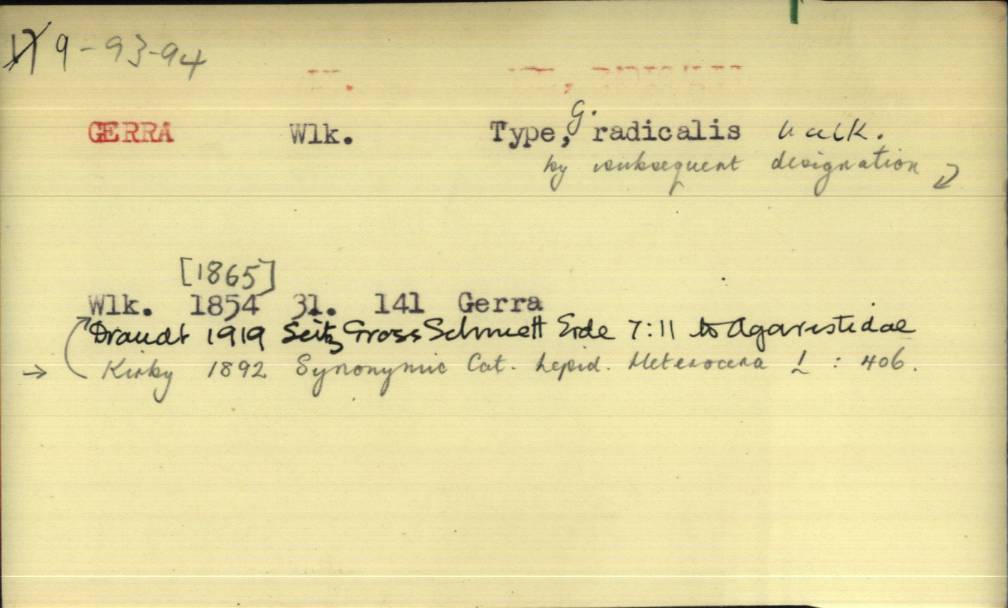 9-93-94
GERRA Wlk. Type, G. radicalis Walk.
by subsequent designation
[1865]
Wlk. 1854 31. 141 Gerra
Draudt 1919 Seitz Gross Schmett Erde 7:11 to Agaristidae
→ Kirby 1892 Synonymic Cat. Lepid. Heterocera 1 : 406.